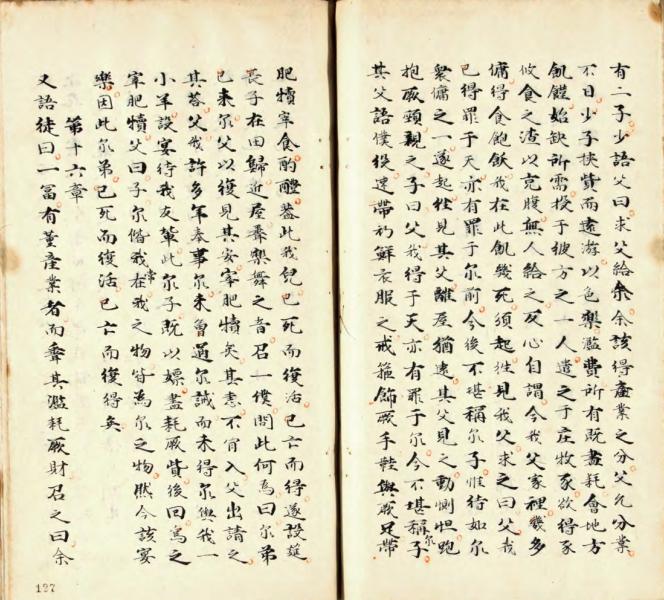 有二子少語父曰求父給余余該得產業之分父允分業
不日少子挾貲而遠游以色樂濫費所有既盡耗會地方
飢饉始缺所需投于彼方之一人遣之于庄牧豕欲得豕
攸食之渣以充腹無人給之反心自謂今我父家裡幾多
傭得食飽飫我在此飢幾死須起徃見我父求之曰父我
已得罪于天亦有罪于尔前今後不堪稱尔子惟待如尔
衆傭之一遂起徃見其父離屋猶遠其父見之動惻怛跑
抱厥頸親之子曰父我得于天亦有罪于尔今不堪稱尔子
其父語僕役速帶初鮮衣服之戒箍飾厥手鞋與厥足帶
肥犢宰食酌醴葢此我兒已死而復活已亡而得遂設筵
長子在田歸近屋聞樂舞之音召一僕問此何為曰尔弟
已来尔父以復見其安宰肥犢矣其恚不肯入父出請之
其荅父我許多年奉事尔未曾違尔誡而未得尔與我一
小羊設宴待我友輩此尔子既以嫖盡耗厥貲後回為之
宰肥犢父曰子尔偕我常在我之物皆為尔之物然今該宴
樂因此尔弟已死而復活已亡而復得矣
第十六章
又語徒曰一冨有董產業者而聞其濫耗厥財召之曰余
197